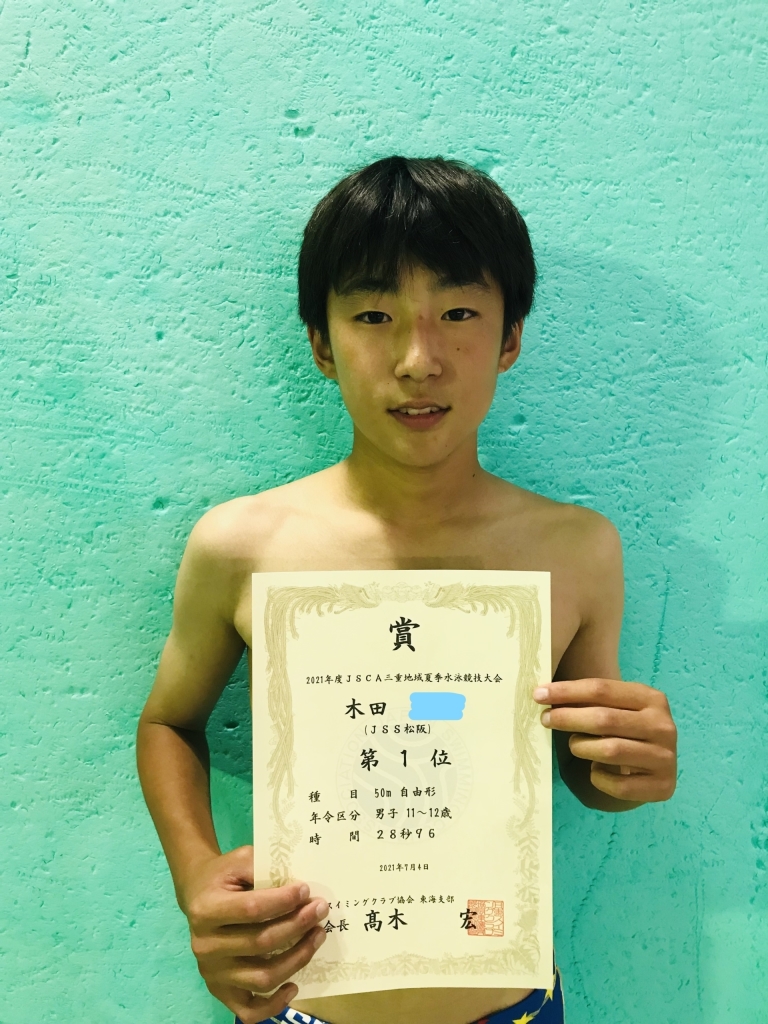 賞
2021年度JSCA三重地域夏季水泳競技大会
木田
(JSS松阪)
第 1 位
種 目 50m 自由形
年令区分 男子 11～12歳
時 間 28秒96
2021年7月4日
スイミングクラブ協会 東海支部
会長 髙木 宏